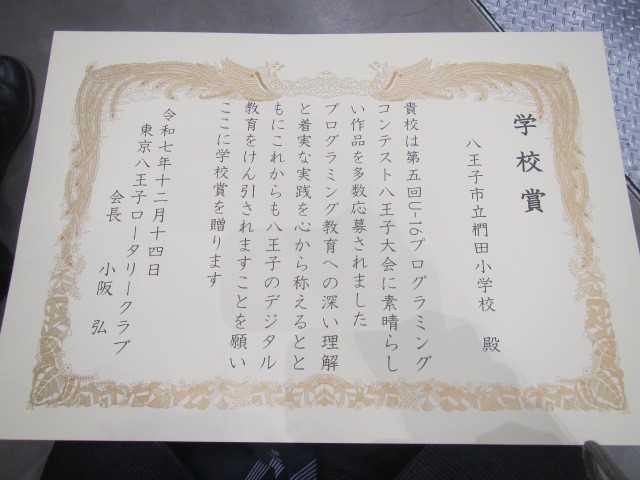 学校賞
八王子市立椚田小学校 殿
貴校は第五回U-16プログラミング
コンテスト八王子大会に素晴らし
い作品を多数応募されました
プログラミング教育への深い理解
と着実な実践を心から称えるとと
もにこれからも八王子のデジタル
教育をけん引されますことを願い
ここに学校賞を贈ります
令和七年十二月十四日
東京八王子ロータリークラブ
会長 小阪 弘